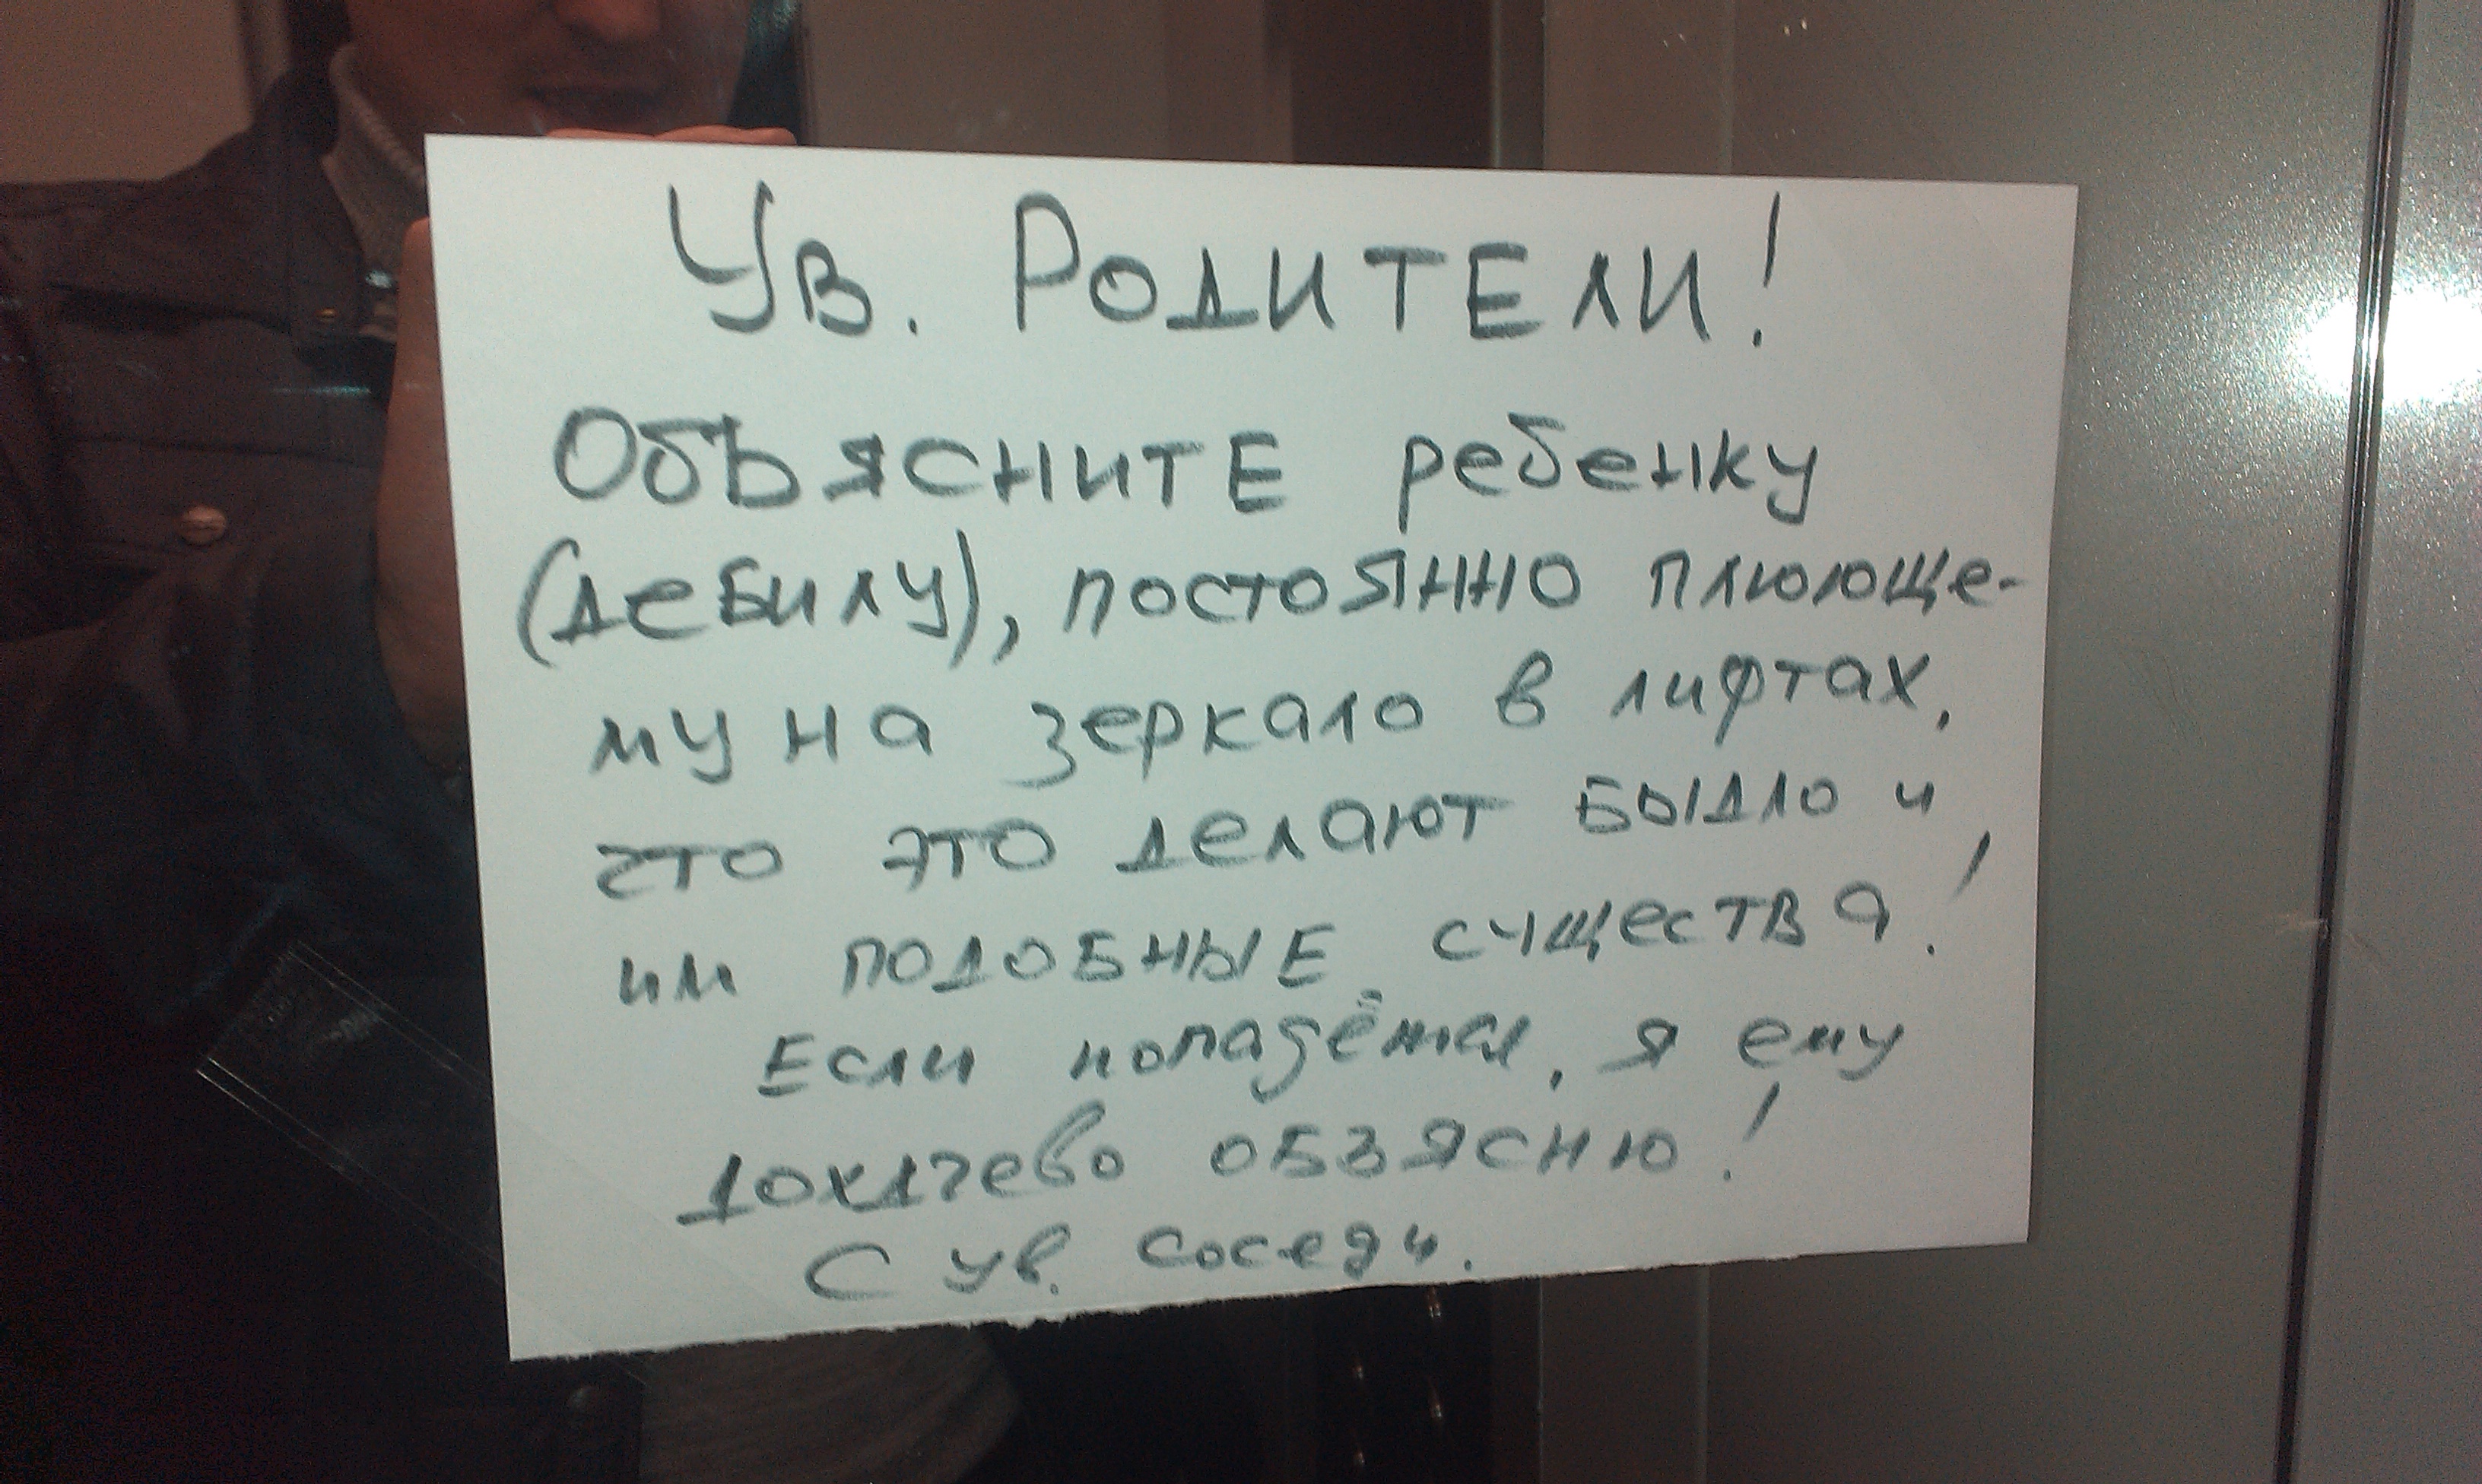 Ув. РОДИТЕЛИ!
Объясните ребенку
(дебилу), постоянно плююще-
му на зеркало в лифтах,
что это делают быдло и
им подобные существа!
Если попадётся, я ему
доходчево объясню!
С ув. соседи.